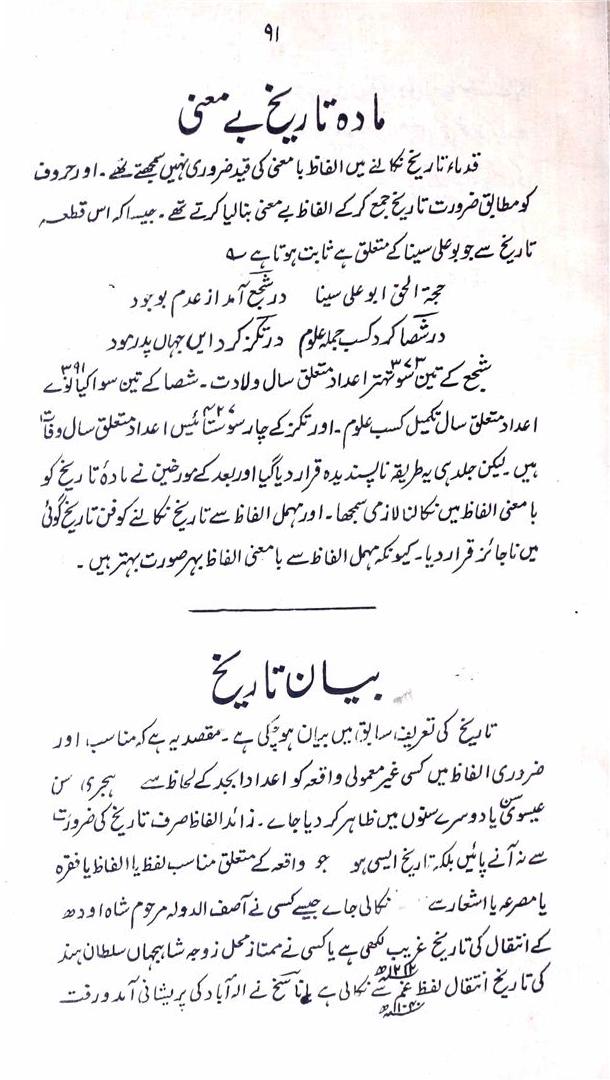 ۹۱
مادہ تاریخ بے معنی
قدماء تاریخ نکالنے میں الفاظ با معنی کی قید ضروری نہیں سمجھتے تھے۔ اور حروف
کو مطابق ضرورت تاریخ جمع کر کے الفاظ بے معنی بنا لیا کرتے تھے۔ جیسا کہ اس قطعہ
تاریخ سے جو بوعلی سینا کے متعلق ہے ثابت ہوتا ہے ؎
حجۃ الحق ابو علی سینا در شجع آمد از عدم بوجود
در شصا کرد کسب جملہ علوم در تکز کرد ایں جہاں پدرود
شجع کے تین سو تہتر ۳۷۳ اعداد متعلق سال ولادت۔ شصا کے تین سو اکیانوے ۳۹۱
اعداد متعلق سال تکمیل کسب علوم۔ اور تکز کے چار سو ستائیس ۴۲۷ اعداد متعلق سال وفات
ہیں۔ لیکن جلد ہی یہ طریقہ ناپسندیدہ قرار دیا گیا اور بعد کے مورخین نے مادۂ تاریخ کو
با معنی الفاظ میں نکالنا لازمی سمجھا۔ اور مہمل الفاظ سے تاریخ نکالنے کو فن تاریخ گوئی
میں ناجائز قرار دیا۔ کیونکہ مہمل الفاظ سے با معنی الفاظ بہر صورت بہتر ہیں۔
بیان تاریخ
تاریخ کی تعریف سابق میں بیان ہو چکی ہے۔ مقصد یہ ہے کہ مناسب اور
ضروری الفاظ میں کسی غیر معمولی واقعہ کو اعداد ابجد کے لحاظ سے ہجری سن
عیسوی سن یا دوسرے سنوں میں ظاہر کر دیا جاے۔ زائد الفاظ صرف تاریخ کی ضرورت
سے نہ آنے پائیں بلکہ تاریخ ایسی ہو جو واقعہ کے متعلق مناسب لفظ یا الفاظ یا فقرہ
یا مصرعہ یا اشعار سے نکالی جاے جیسے کسی نے آصف الدولہ مرحوم شاہ اودھ
کے انتقال کی تاریخ غریب لکھی ہے یا کسی نے ممتاز محل زوجہ شاہجہاں سلطان ہند
۱۲۱۲ھ
کی تاریخ انتقال لفظ غم سے نکالی ہے یا ناسخ نے الہ آباد کی پریشانی آمد و رفت
۱۰۴۰ھ